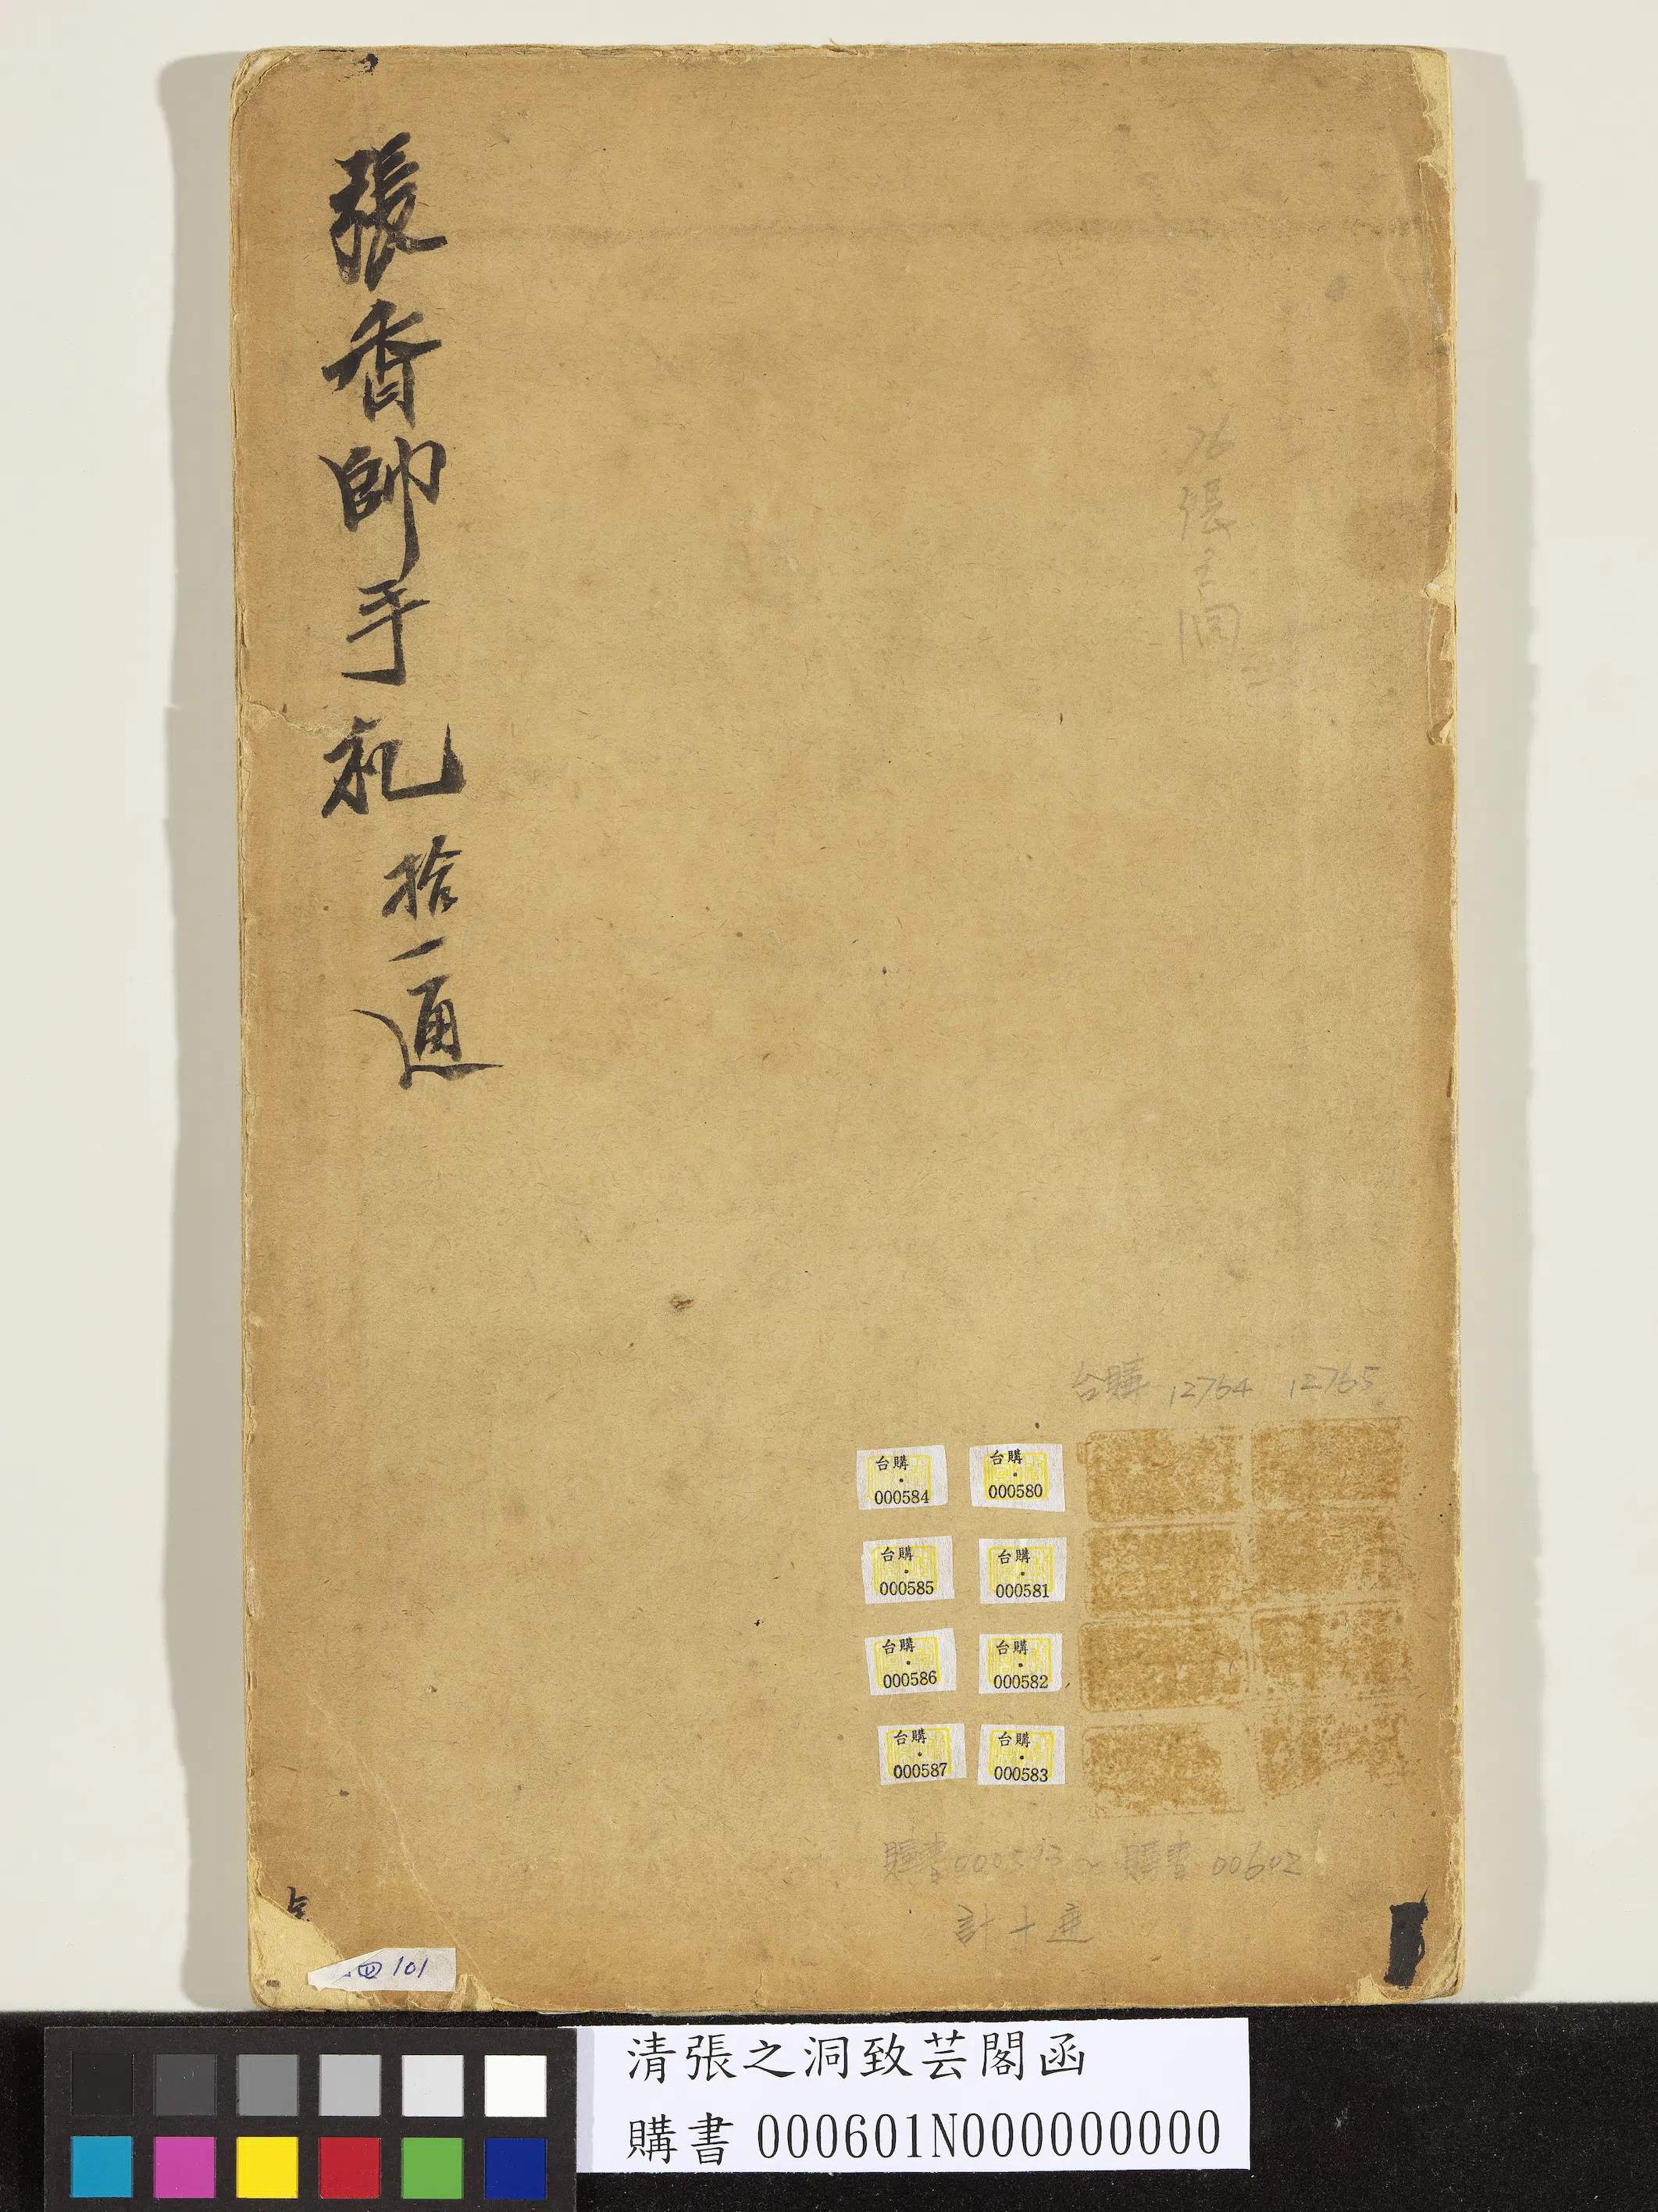 張香帥手札拾一通
76張之洞
台購 12764 12765
台購
000584
台購
000580
台購
000585
台購
000581
台購
000586
台購
000582
台購
000587
台購
000583
購書000593~購書00602
計十選
四101
清張之洞致芸閣函
購書 000601N000000000